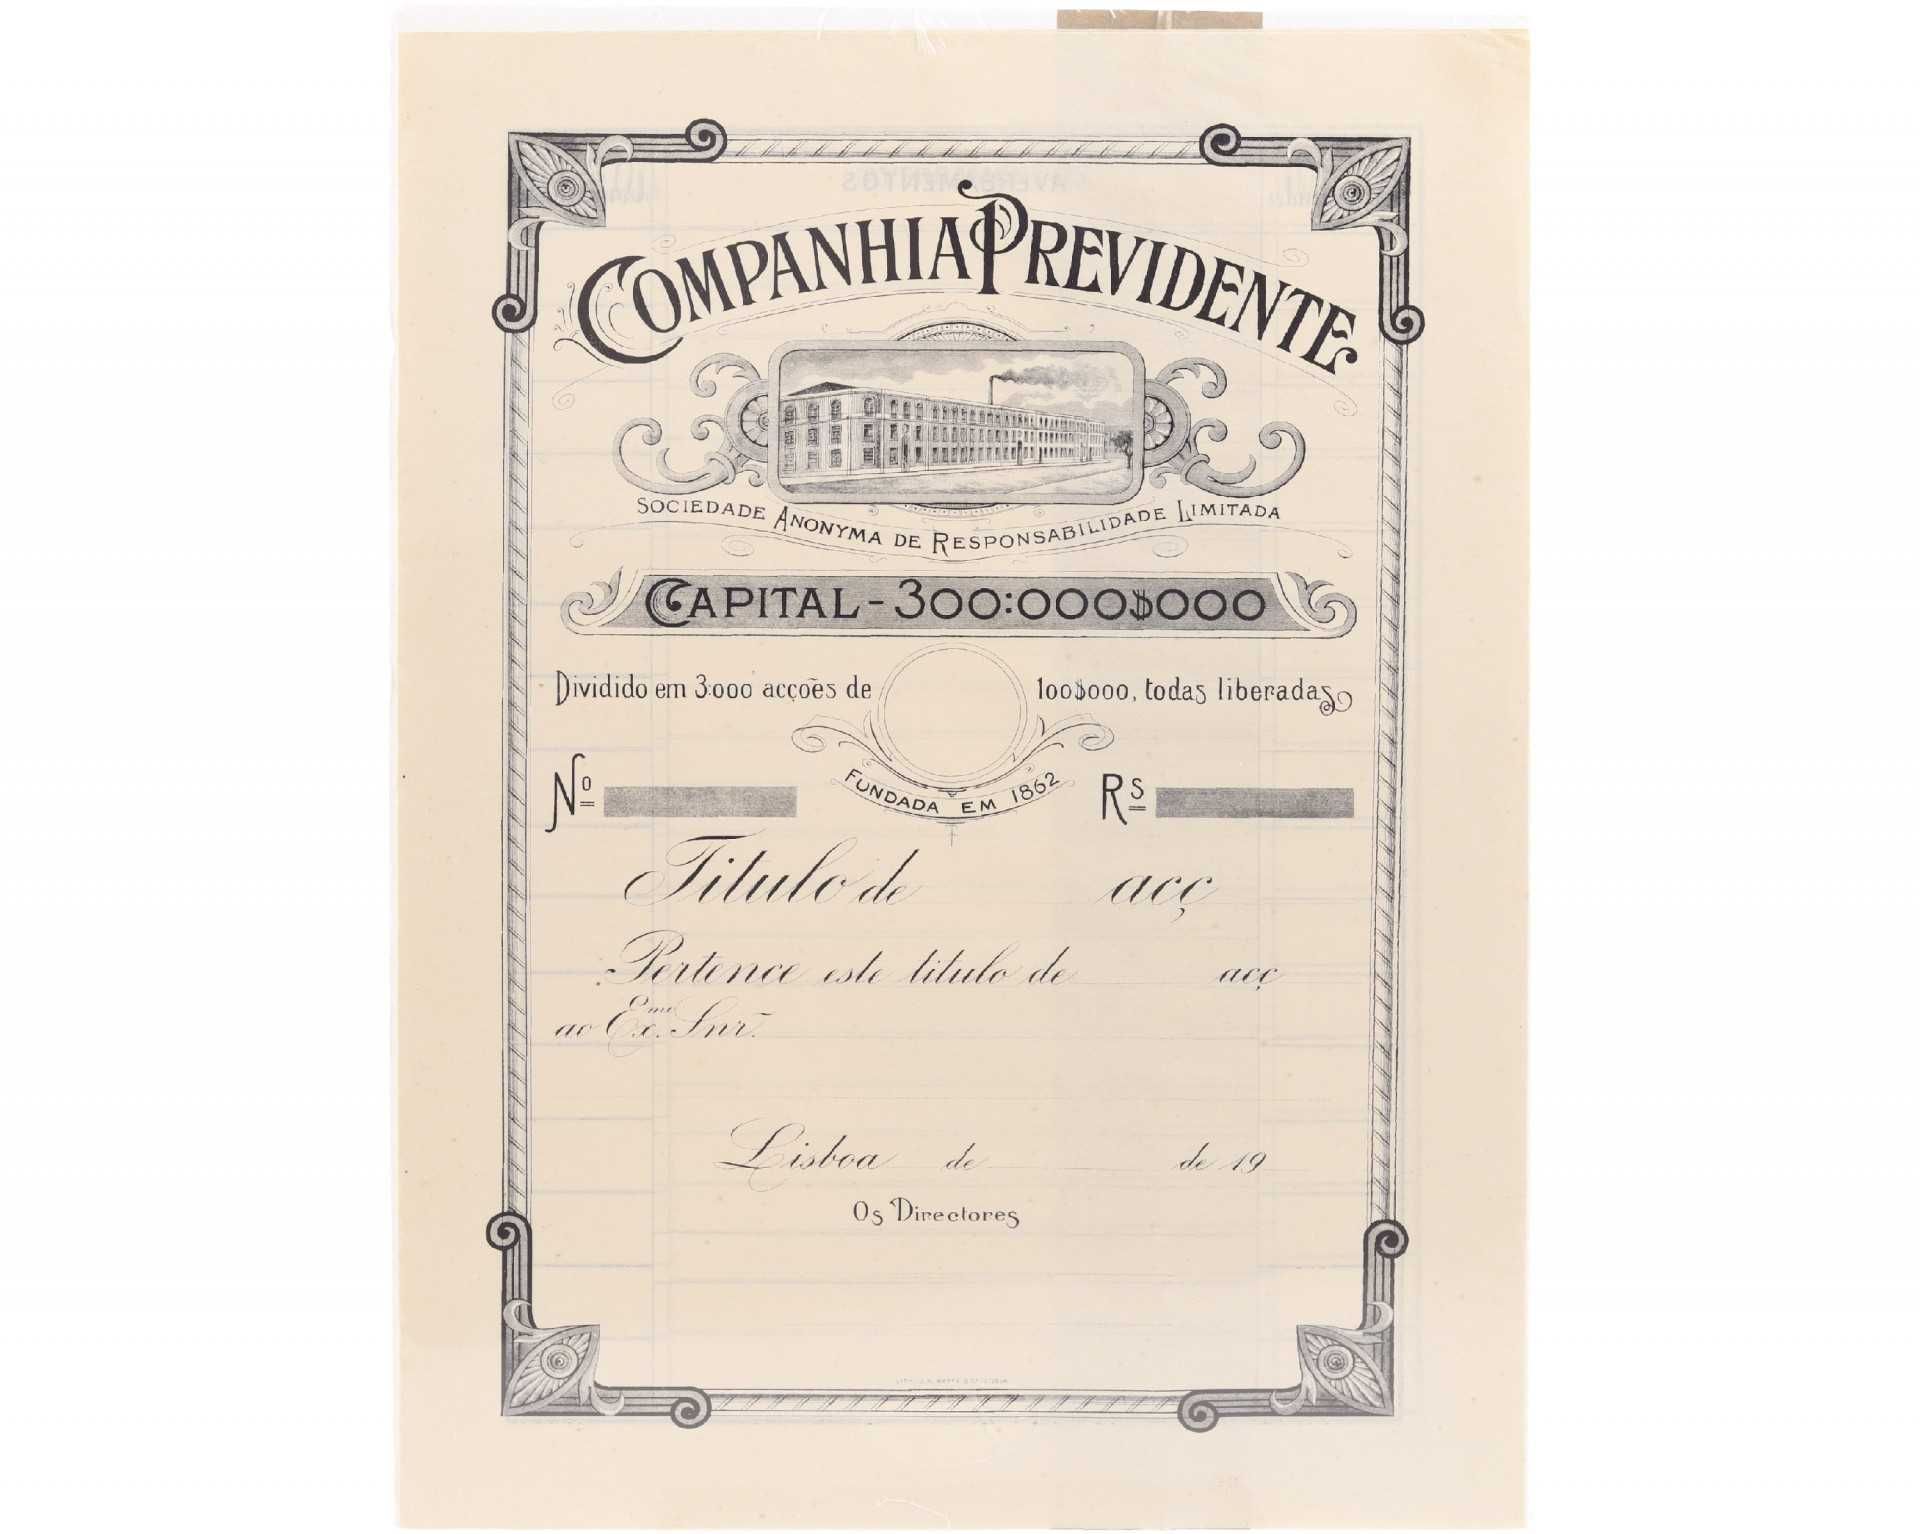 COMPANHIA PREVIDENTE
SOCIEDADE ANONYMA DE RESPONSABILIDADE LIMITADA
CAPITAL - 300:000$000
Dividido em 3:000 acções de 100$000, todas liberadas
FUNDADA EM 1862
Nº
Rs
Titulo de acç
Pertence este titulo de acç
ao Exmo. Snr.
Lisboa de de 19
Os Directores
AVERBAMENTOS